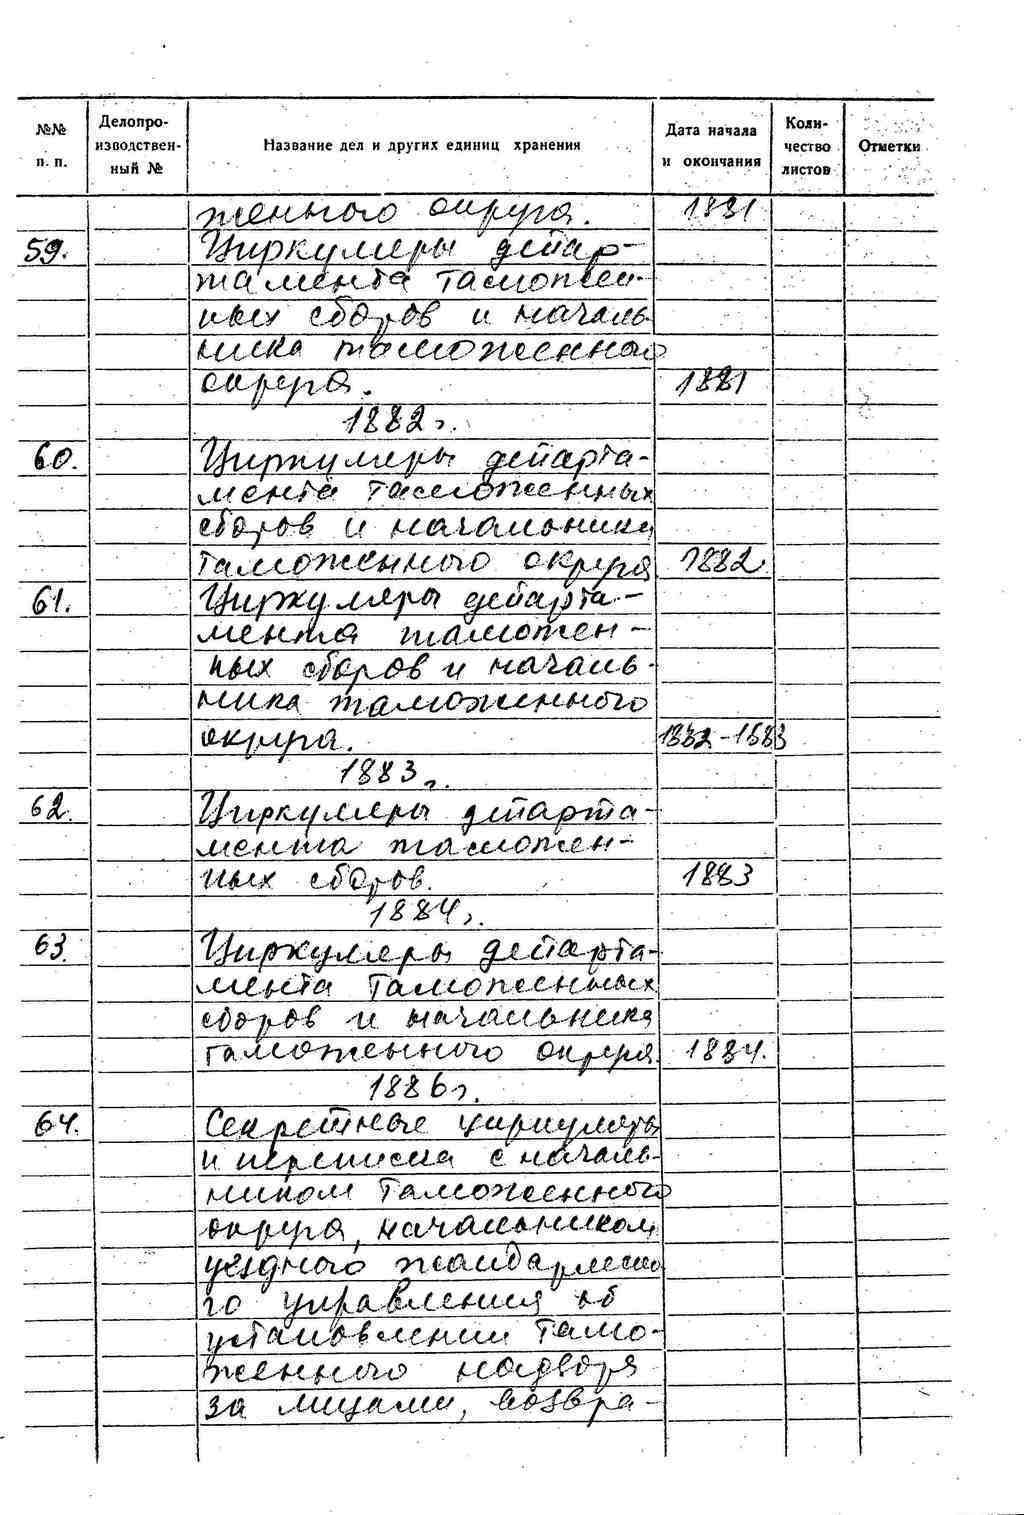 №№ п. п. Делопроизводственный № Название дел и других единиц хранения Дата начала и окончания Количество листов Отметки
женного округа. 1881
59. Циркуляры депар-
тамента таможен-
ных сборов и началь-
ника таможенного
округа. 1881
1882г.
60. Циркуляры департа-
мента таможенных
сборов и начальника
таможенного округа 1882.
61. Циркуляры департа-
мента таможен-
ных сборов и началь-
ника таможенного
округа. 1882-1883
1883г.
62. Циркуляры департа-
мента таможен-
ных сборов. 1883
1884г.
63. Циркуляры департа-
мента таможенных
сборов и начальника
таможенного округа. 1884.
1886г.
64. Секретные циркуляры
и переписка с началь-
ником таможенного
округа, начальником
уездного жандармско
го управления об
установлении тамо-
женного надзора
за лицами, возвра-